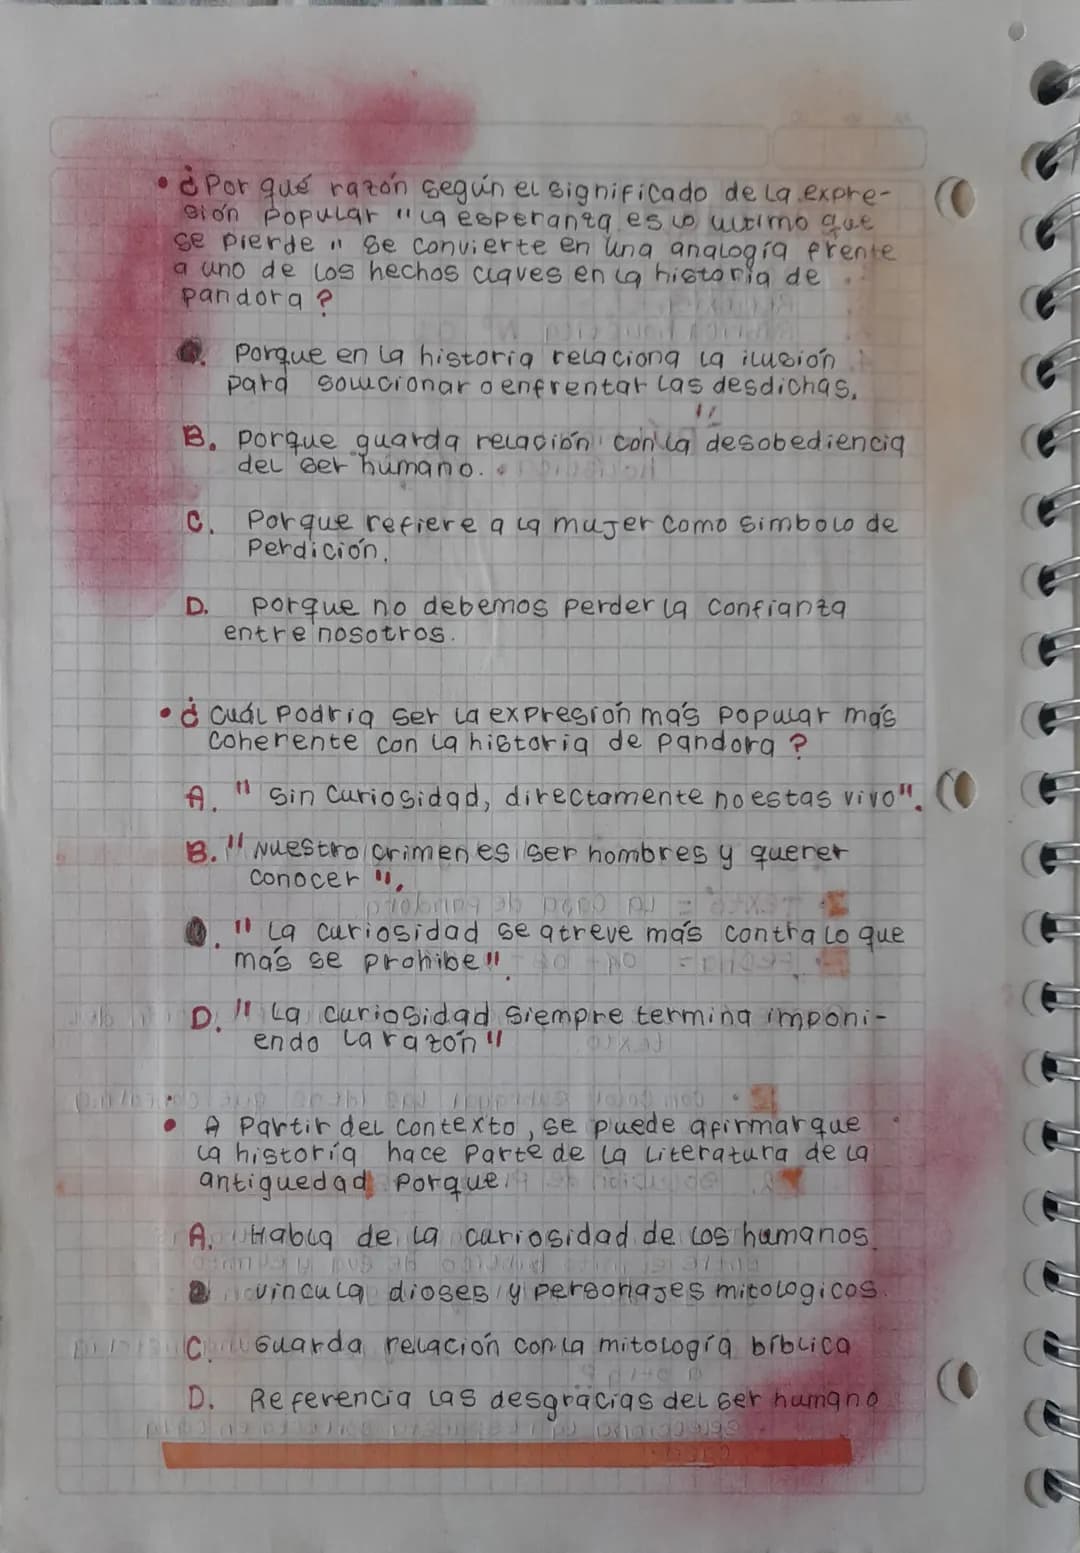 • ¿Por qué razón según el significado de la expre-
sión popular "la esperanza es lo ultimo que
se pierde" se convierte en una analogía frente
a uno de los hechos claves en la historia de
pandora?
Porque en la historia relaciona la ilusión
para solucionar o enfrentar las desdichas.
B. porque guarda relación con la desobediencia
del ser humano.
C. Porque refiere a la mujer como simbolo de
Perdición.
D. porque no debemos perder la confianza
entre nosotros.
• ¿Cuál Podria ser la expresión más popular más
coherente con la historia de pandora?
A. "Sin curiosidad, directamente no estas vivo".
B. "Nuestro crimen es ser hombres y querer
conocer".
"La curiosidad se atreve más contra lo que
más se prohibe".
D. "La curiosidad siempre termina imponi-
endo la razón"
• A Partir del contexto, se puede afirmar que
la historia hace Parte de la literatura de la
antiguedad porque
A. Habla de la curiosidad de los humanos.
vincula dioses y personajes mitologicos.
C. Guarda relación con la mitología bíblica
D. Referencia las desgracias del ser humano